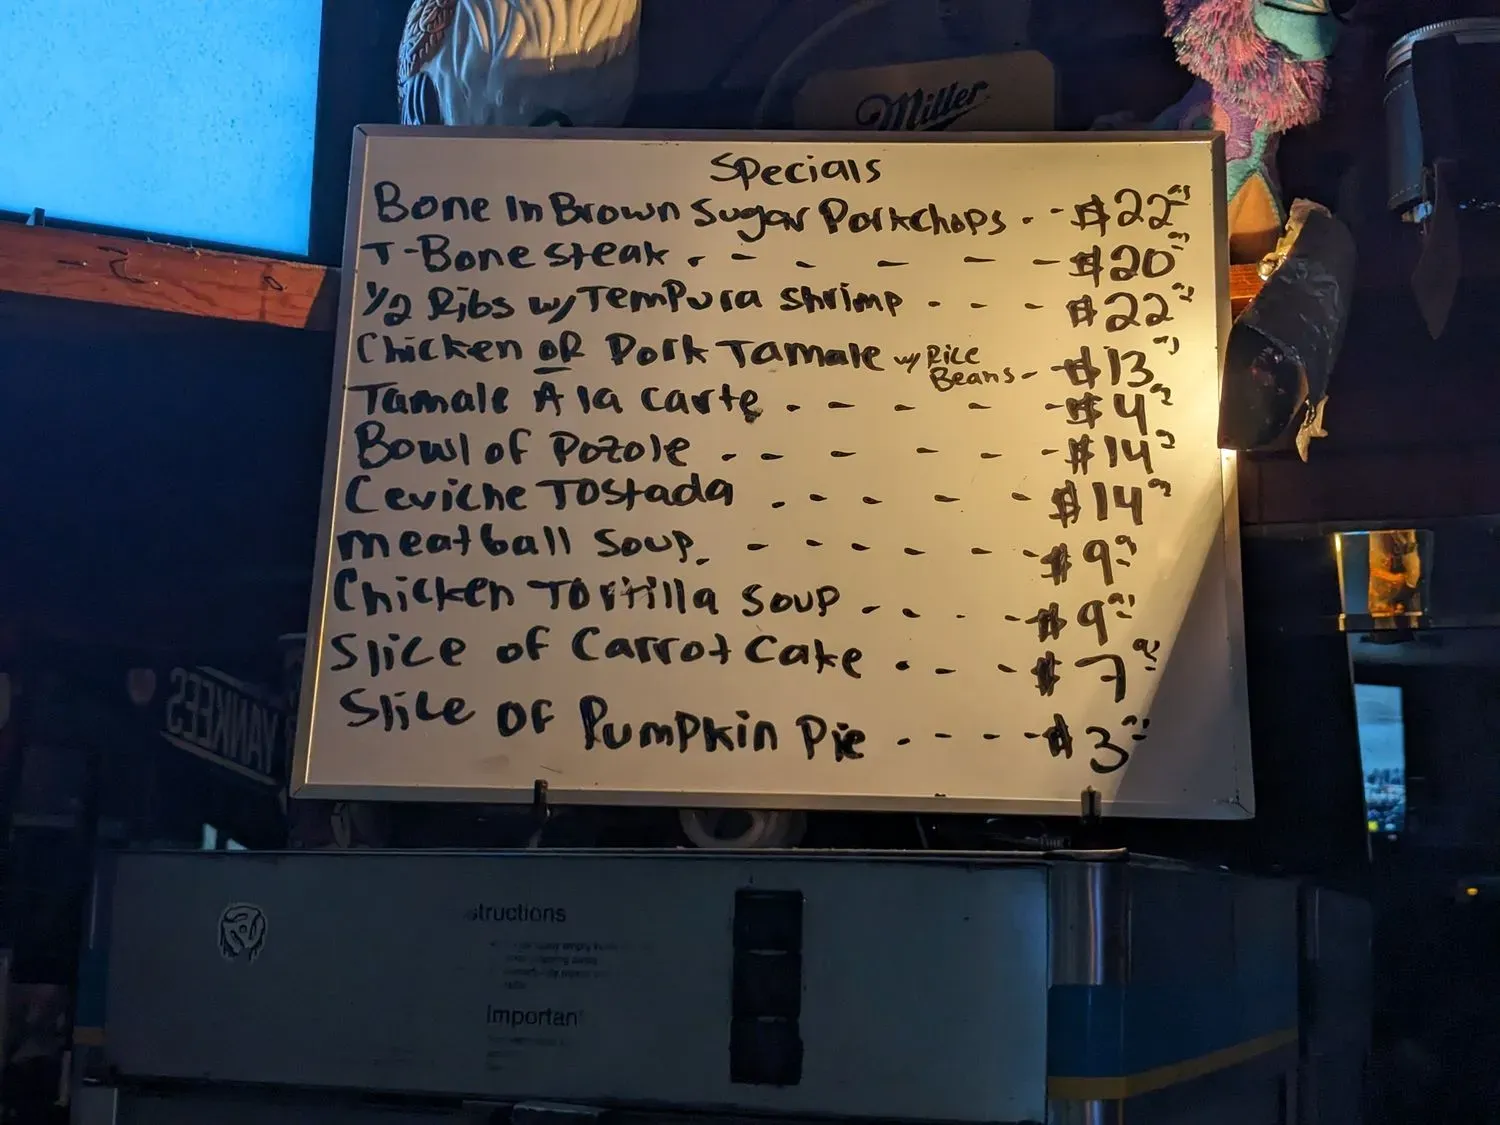 Miller
Specials
Bone In Brown Sugar Porkchops . - $22
T-Bone steak . - - - - - $20
1/2 Ribs w/ Tempura shrimp - - - $22
Chicken OR Pork Tamale w/ Rice Beans - - $13
Tamale A la carte . - - - - $4
Bowl of Pozole - - - - - - $14
Ceviche Tostada . - - - - $14
meatball soup . - - - - - - $9
Chicken Tortilla soup - - - - - $9
Slice of Carrot Cake . - - - $7
Slice of Pumpkin Pie . - - - - $3
YANKEES
structions
Importan